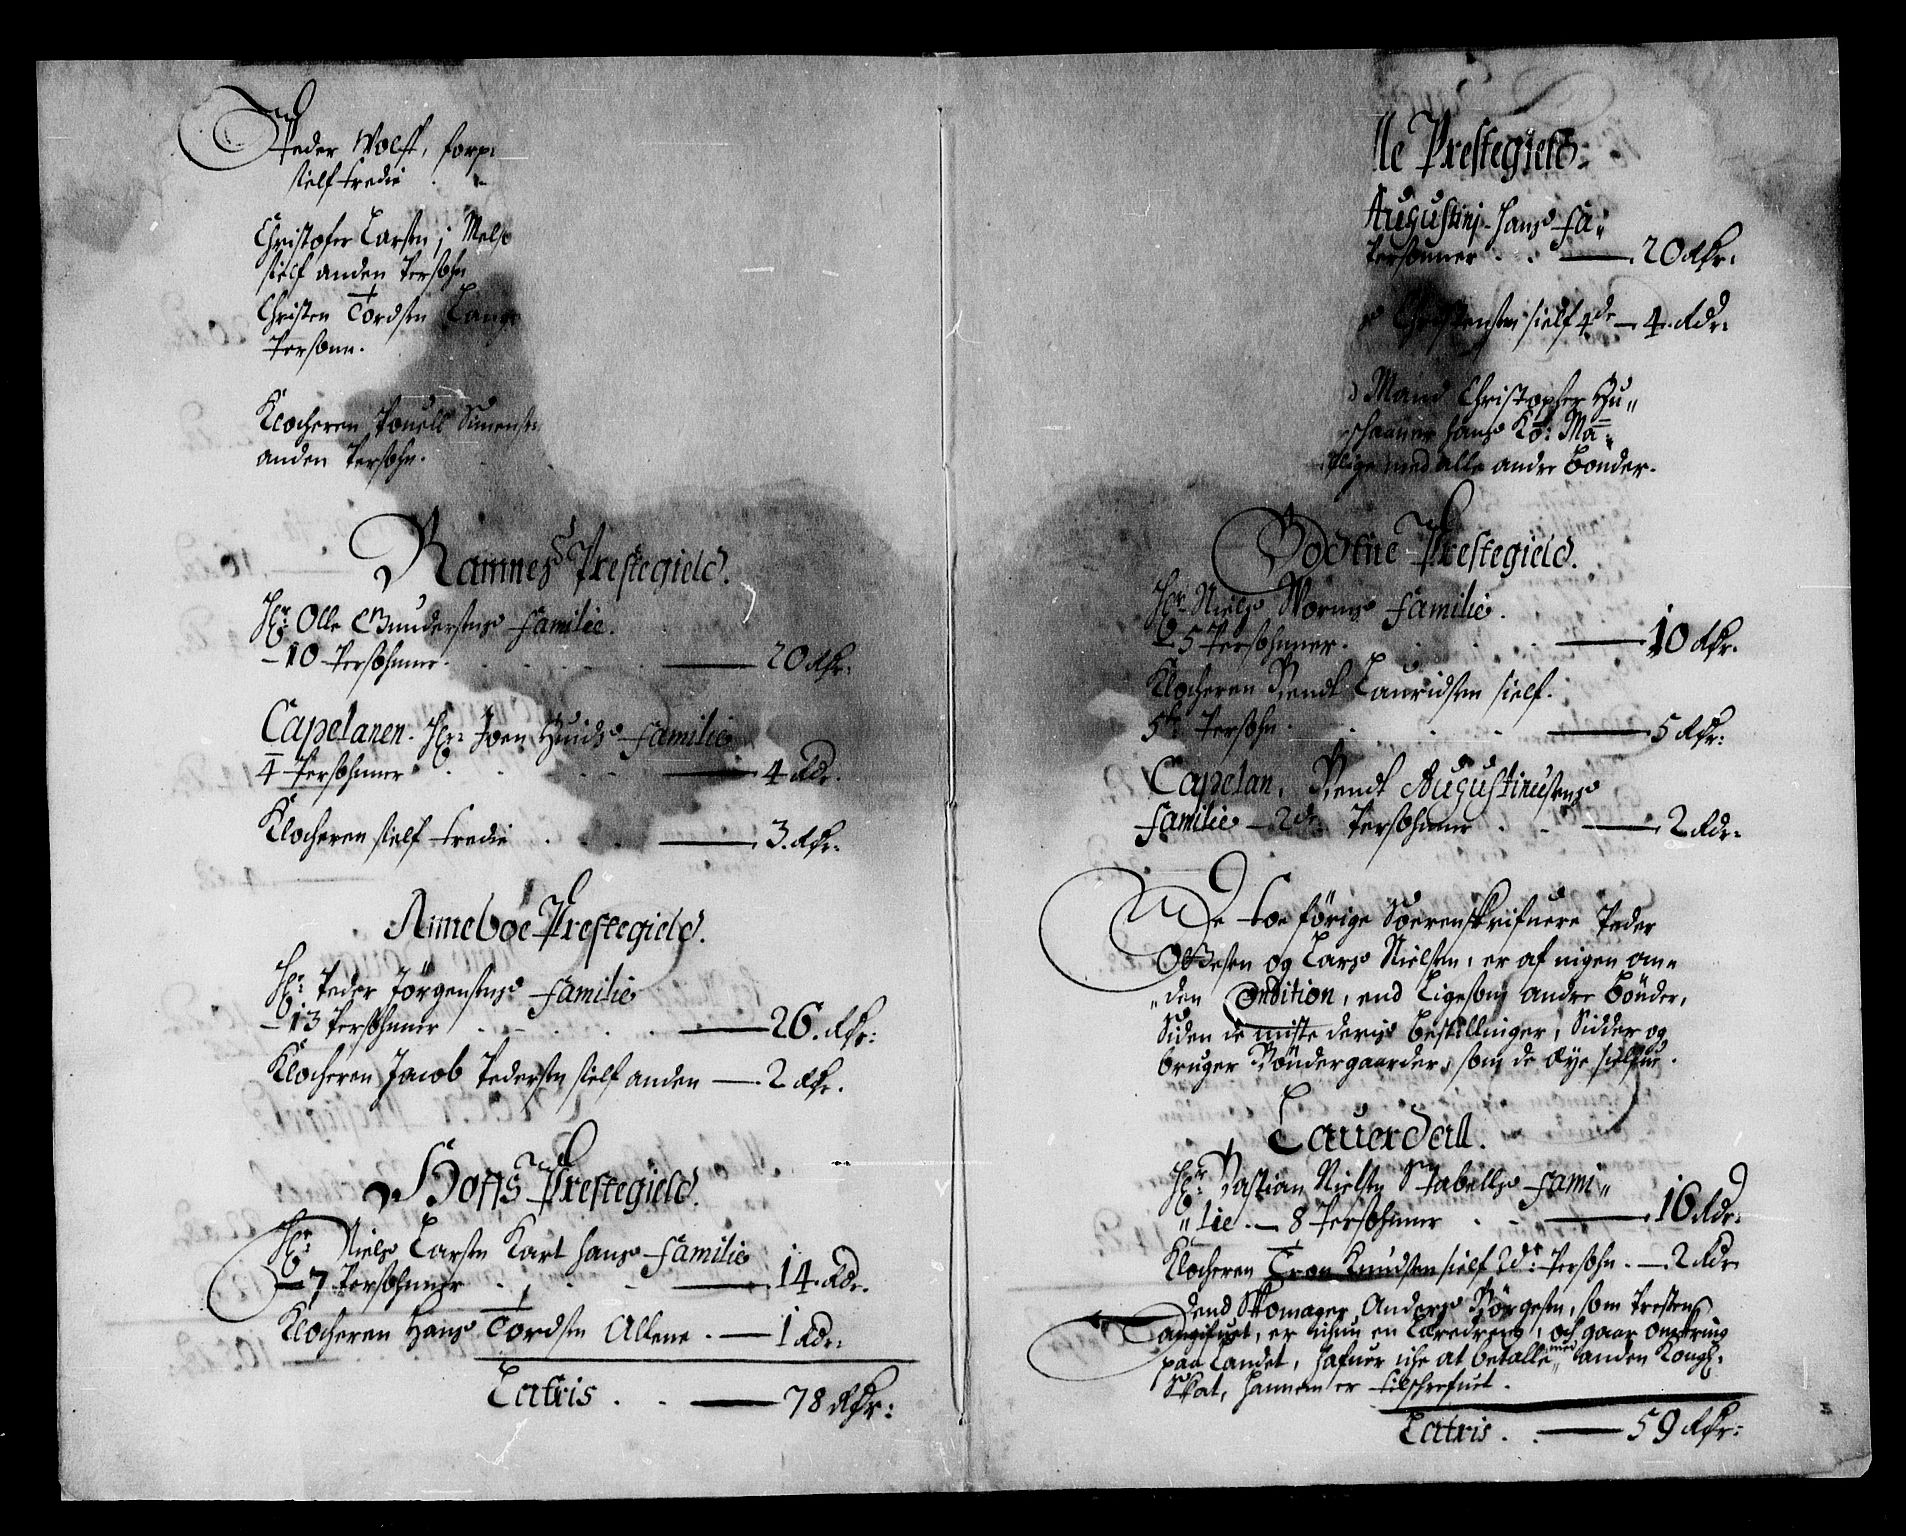 Peder Wolff, forp:
sielf tredie
Christofer Larsen i Mels
sielf anden Persohn
Christen Tordsen Lang
Persone.
Klocheren Pouell Simens:
anden Persohn.
Ramnes Prestegield.
Hr: Olle Gundersens familie.
10 Persohner. 20 Rdr:
Capelanen. Hr: Joen Huids familie
4 Persohner 4 Rdr.
Klocheren sielf tredie 3. Rdr:
Anneboe Prestegield.
Hr: Peder Jörgensens familie
13 Persohner 26. Rdr:
Klocheren Jacob Pedersen sielf anden 2 Rdr.
Botts Prestegield.
Hr Niels Larsen Kart hans familie
7 Persohner 14. Rdr.
Klocheren Hans Tordsen Allene. 1 Rdr:
Latris 78 Rdr:
lle Prestegield:
Augustinj hans fa:
Persouner 20 Rdr:
Christensen sielf 4de 4. Rdr:
Mand Christopher Hu„
hans Ko: Ma:
med alle andre Bönder.
Bodtne Prestegield.
Hr Niels Worms familie.
5 Persohner. 10 Rdr.
Klocheren Bendt Lauridsen sielf.
5te Persohn. 5 Rdr:
Capelan. Bendt Augustinusens
familie 2de Persohner 2 Rdr:
De toe förige Soerenskrifuere Peder
Olesen og Lars Nielsen, er af nigen an„
„den Condition, end ligesom andre Bönder,
Siden de miste deris bestillinger, Sidder og
bruger Böndergaarder, som de Eye sielfue.
Lauerdall.
Hr: Bastian Nielsen Stabells fami„
„lie. 8 Persohner 16 Rdr:
Klocheren Tron Knudsen sielf 2de: Persohn. 2 Rdr
Dend Skomager Anders Börgesen, som Presten
angifuet, er ichun en Læredreng, och gaar omkring
paa Landet, hafuer iche at betalle med anden Kongl:
Skat, hannem er tilschrefuet.
Latris. 59 Rdr: